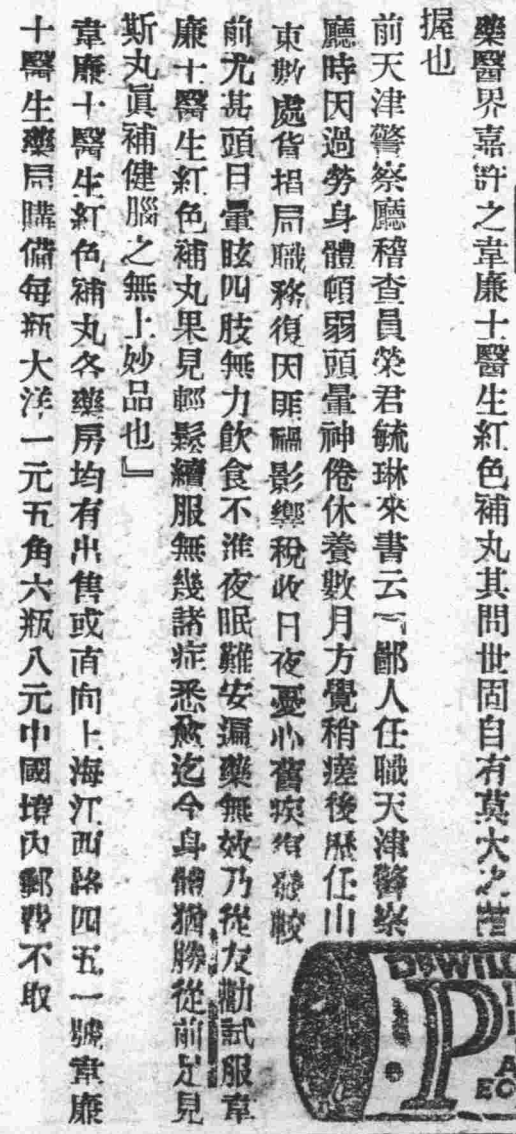 藥醫界嘉許之韋廉士醫生紅色補丸其問世固自有莫大之
握也
前天津警察廳稽查員榮君毓琳來書云『鄙人任職天津警察
廳時因過勞身體頓弱頭暈神倦休養數月方覺稍痊後歷任山
東數處貨捐局職務復因匪禍影響稅收日夜憂心舊疾復發較
前尤甚頭目暈眩四肢無力飲食不進夜眠難安遍藥無效乃從友勸試服韋
廉士醫生紅色補丸果見輕鬆續服無幾諸症悉愈迄今身體猶勝從前足見
斯丸眞補健腦之無上妙品也』
韋廉士醫生紅色補丸各藥房均有出售或直向上海江西路四五一號韋廉
士醫生藥局購備每瓶大洋一元五角六瓶八元中國境內郵費不取
DR WILL
P